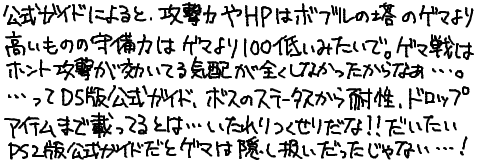 公式ガイドによると、攻撃力やHPはボブルの塔のゲマより
高いものの守備力はゲマより100低いみたいで。ゲマ戦は
ホント攻撃が効いてる気配が全くしなかったからなぁ…。
…ってDS版公式ガイド、ボスのステータスから耐性、ドロップ
アイテムまで載ってるとは…いたれりつくせりだな!!だいたい
PS2版公式ガイドだとゲマは隠し扱いだったじゃない…!